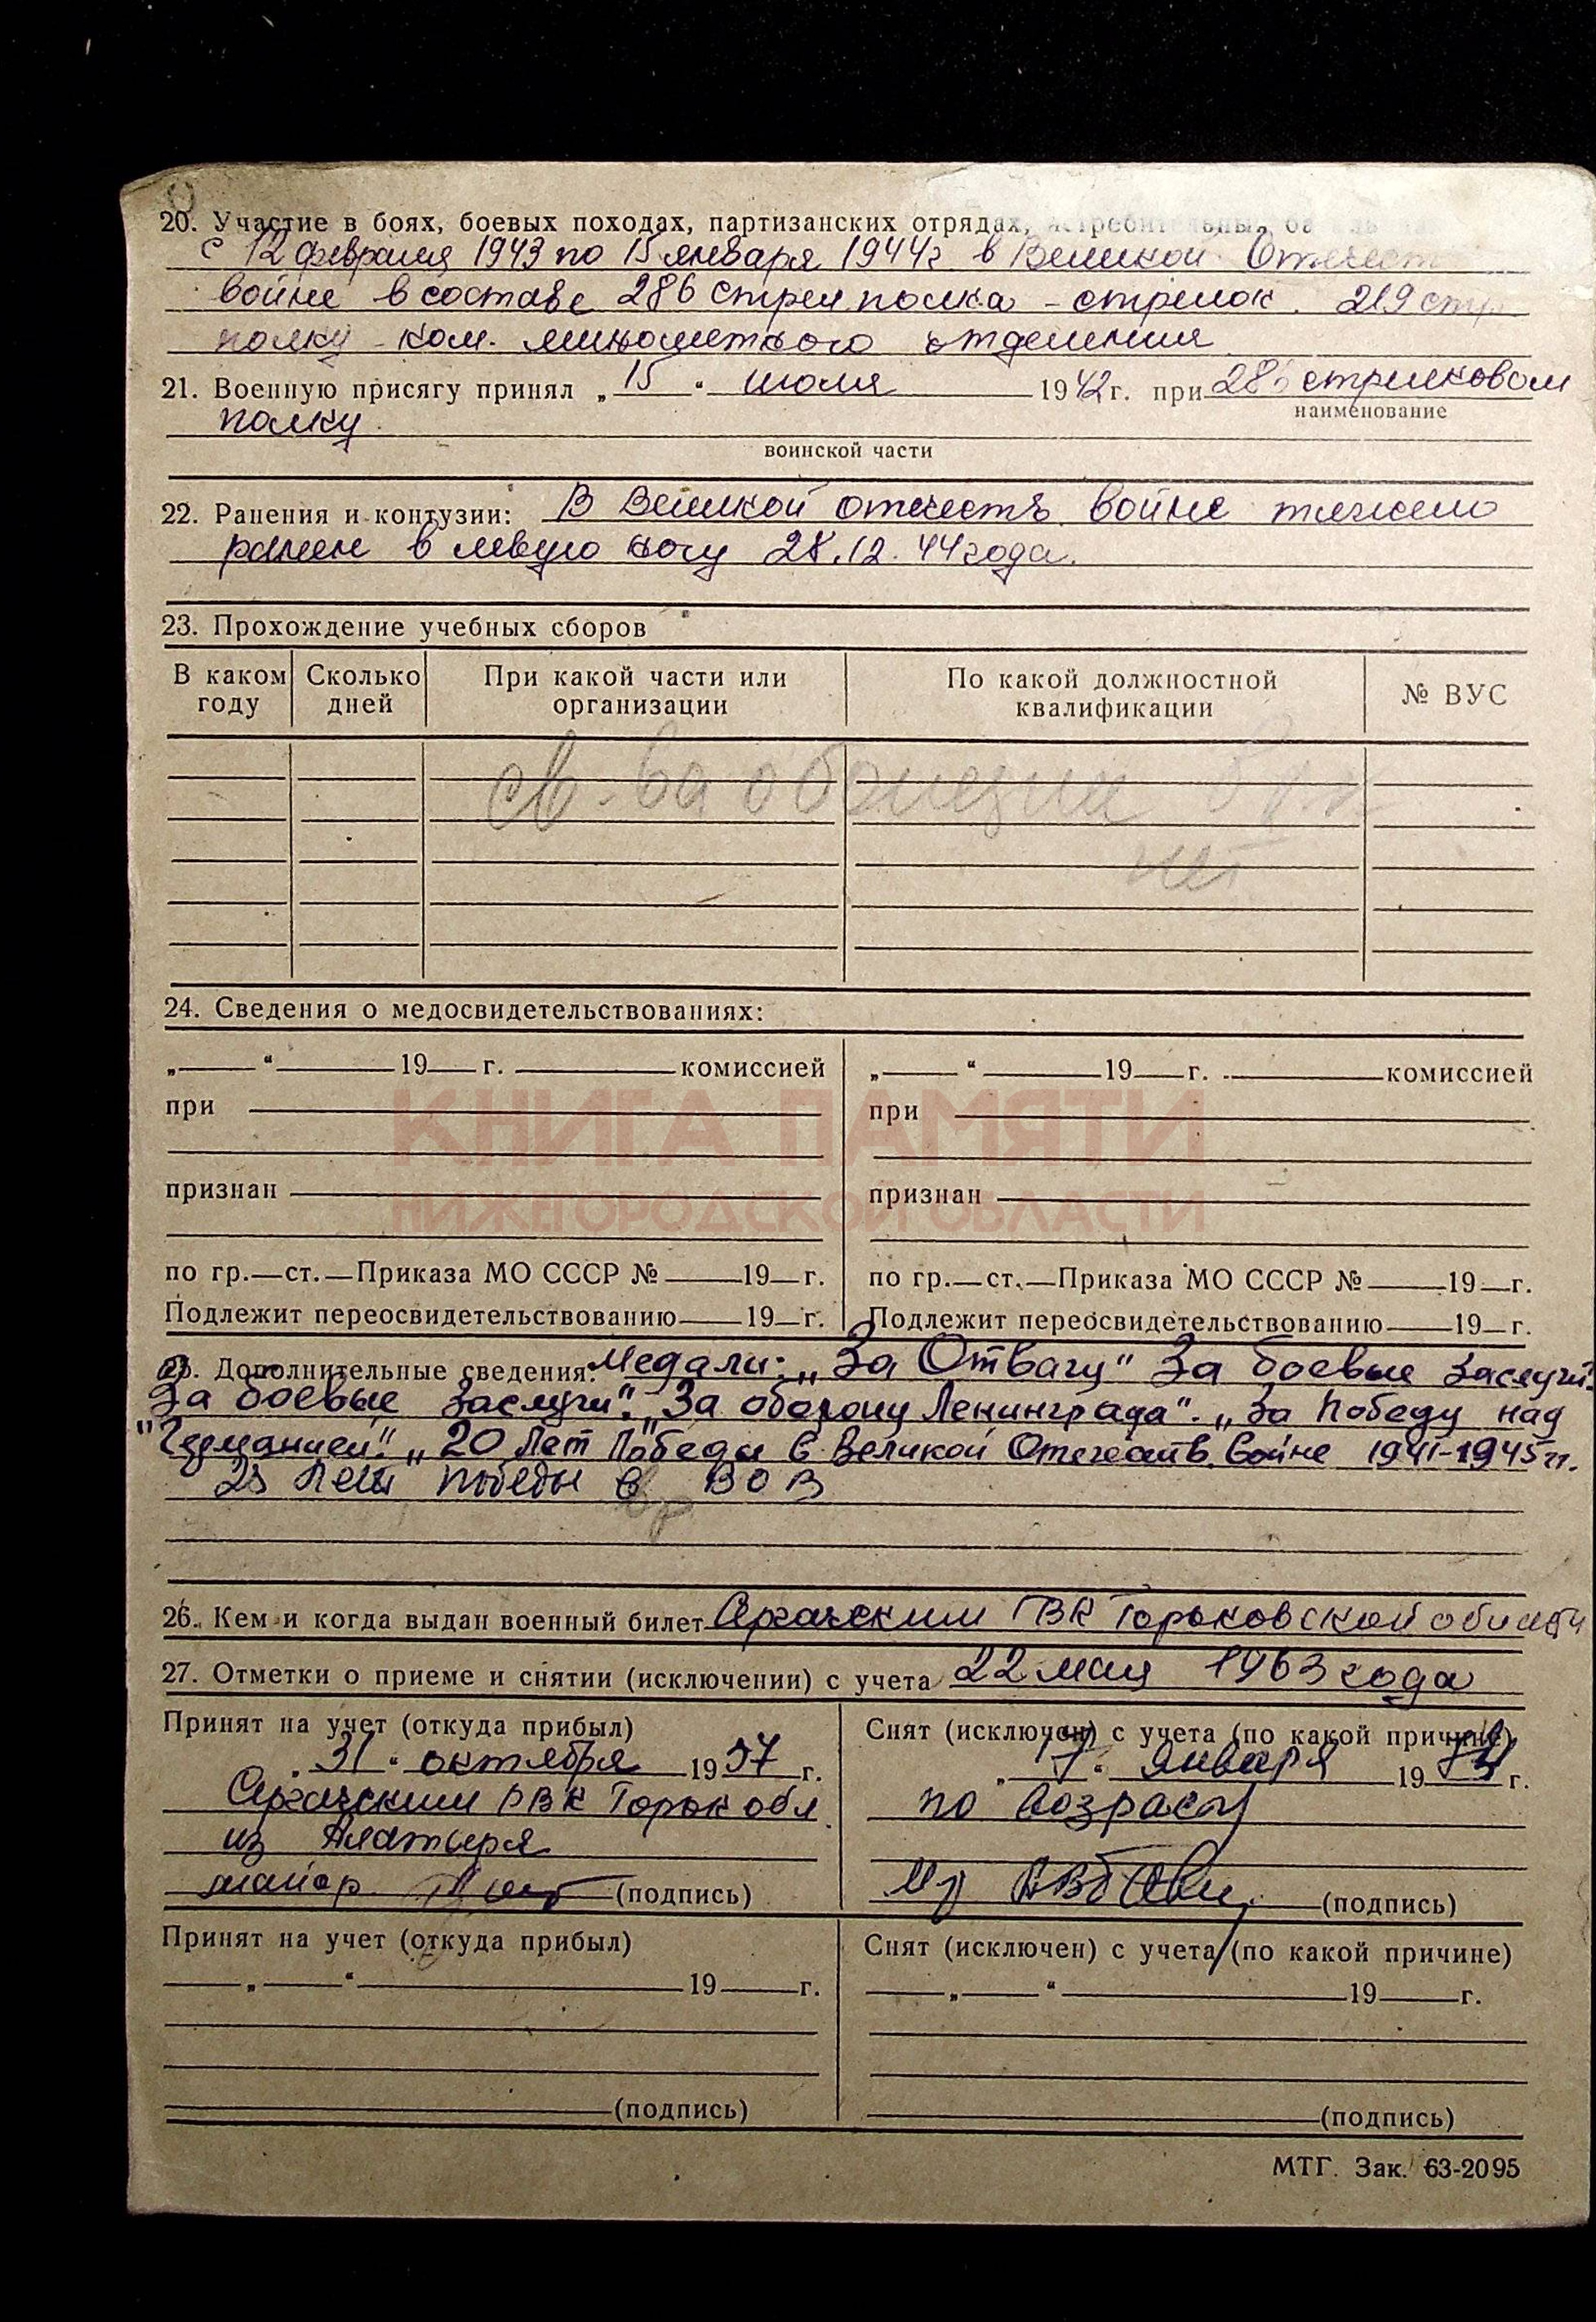 20. Участие в боях, боевых походах, партизанских отрядах,
с 12 февраля 1943 по 15 января 1944г. в Великой Отечест
войне в составе 286 стрел. полка - стрелок. 219 стр.
полку - ком. минометного отделения
21. Военную присягу принял „15“ июля 1942г. при 286 стрелковом
наименование
полку
воинской части
22. Ранения и контузии: В Великой отечеств. войне тяжело
ранен в левую ногу 28.12.44 года.
23. Прохождение учебных сборов
В каком году Сколько дней При какой части или организации По какой должностной квалификации № ВУС
нет
24. Сведения о медосвидетельствованиях:
„ “ 19 г. комиссией „ “ 19 г. комиссией
при при
КНИГА ПАМЯТИ
признан признан
НИЖЕГОРОДСКОЙ ОБЛАСТИ
по гр.—ст.—Приказа МО СССР № 19 г. по гр.—ст.—Приказа МО СССР № 19 г.
Подлежит переосвидетельствованию 19 г. Подлежит переосвидетельствованию 19 г.
25. Дополнительные сведения: Медали: „За Отвагу" За боевые заслуги.
За боевые заслуги". „За оборону Ленинграда". „За Победу над
"Германией". „20 лет Победы в Великой Отечеств. войне 1941-1945гг.
25 лет победы в ВОВ
26. Кем и когда выдан военный билет Сергачским ГВК Горьковской области
27. Отметки о приеме и снятии (исключении) с учета 22 мая 1963 года
Принят на учет (откуда прибыл) Снят (исключен) с учета (по какой причине)
„31“ октября 1957 г. „7“ января 19 г.
Сергачским РВК Горьк обл. по возрасту
из Алатыря
майор (подпись) (подпись)
Принят на учет (откуда прибыл) Снят (исключен) с учета (по какой причине)
„ “ 19 г. „ “ 19 г.
(подпись) (подпись)
МТГ. Зак. 63-2095